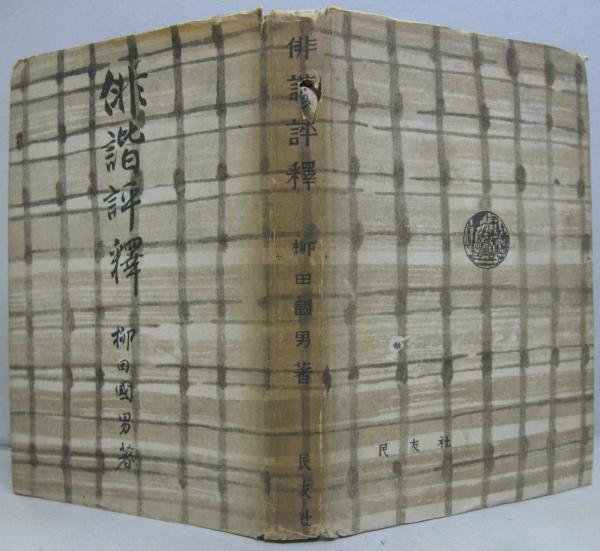 俳諧評釋
柳田國男著
俳諧評釋
柳田國男著
民友社
民友社